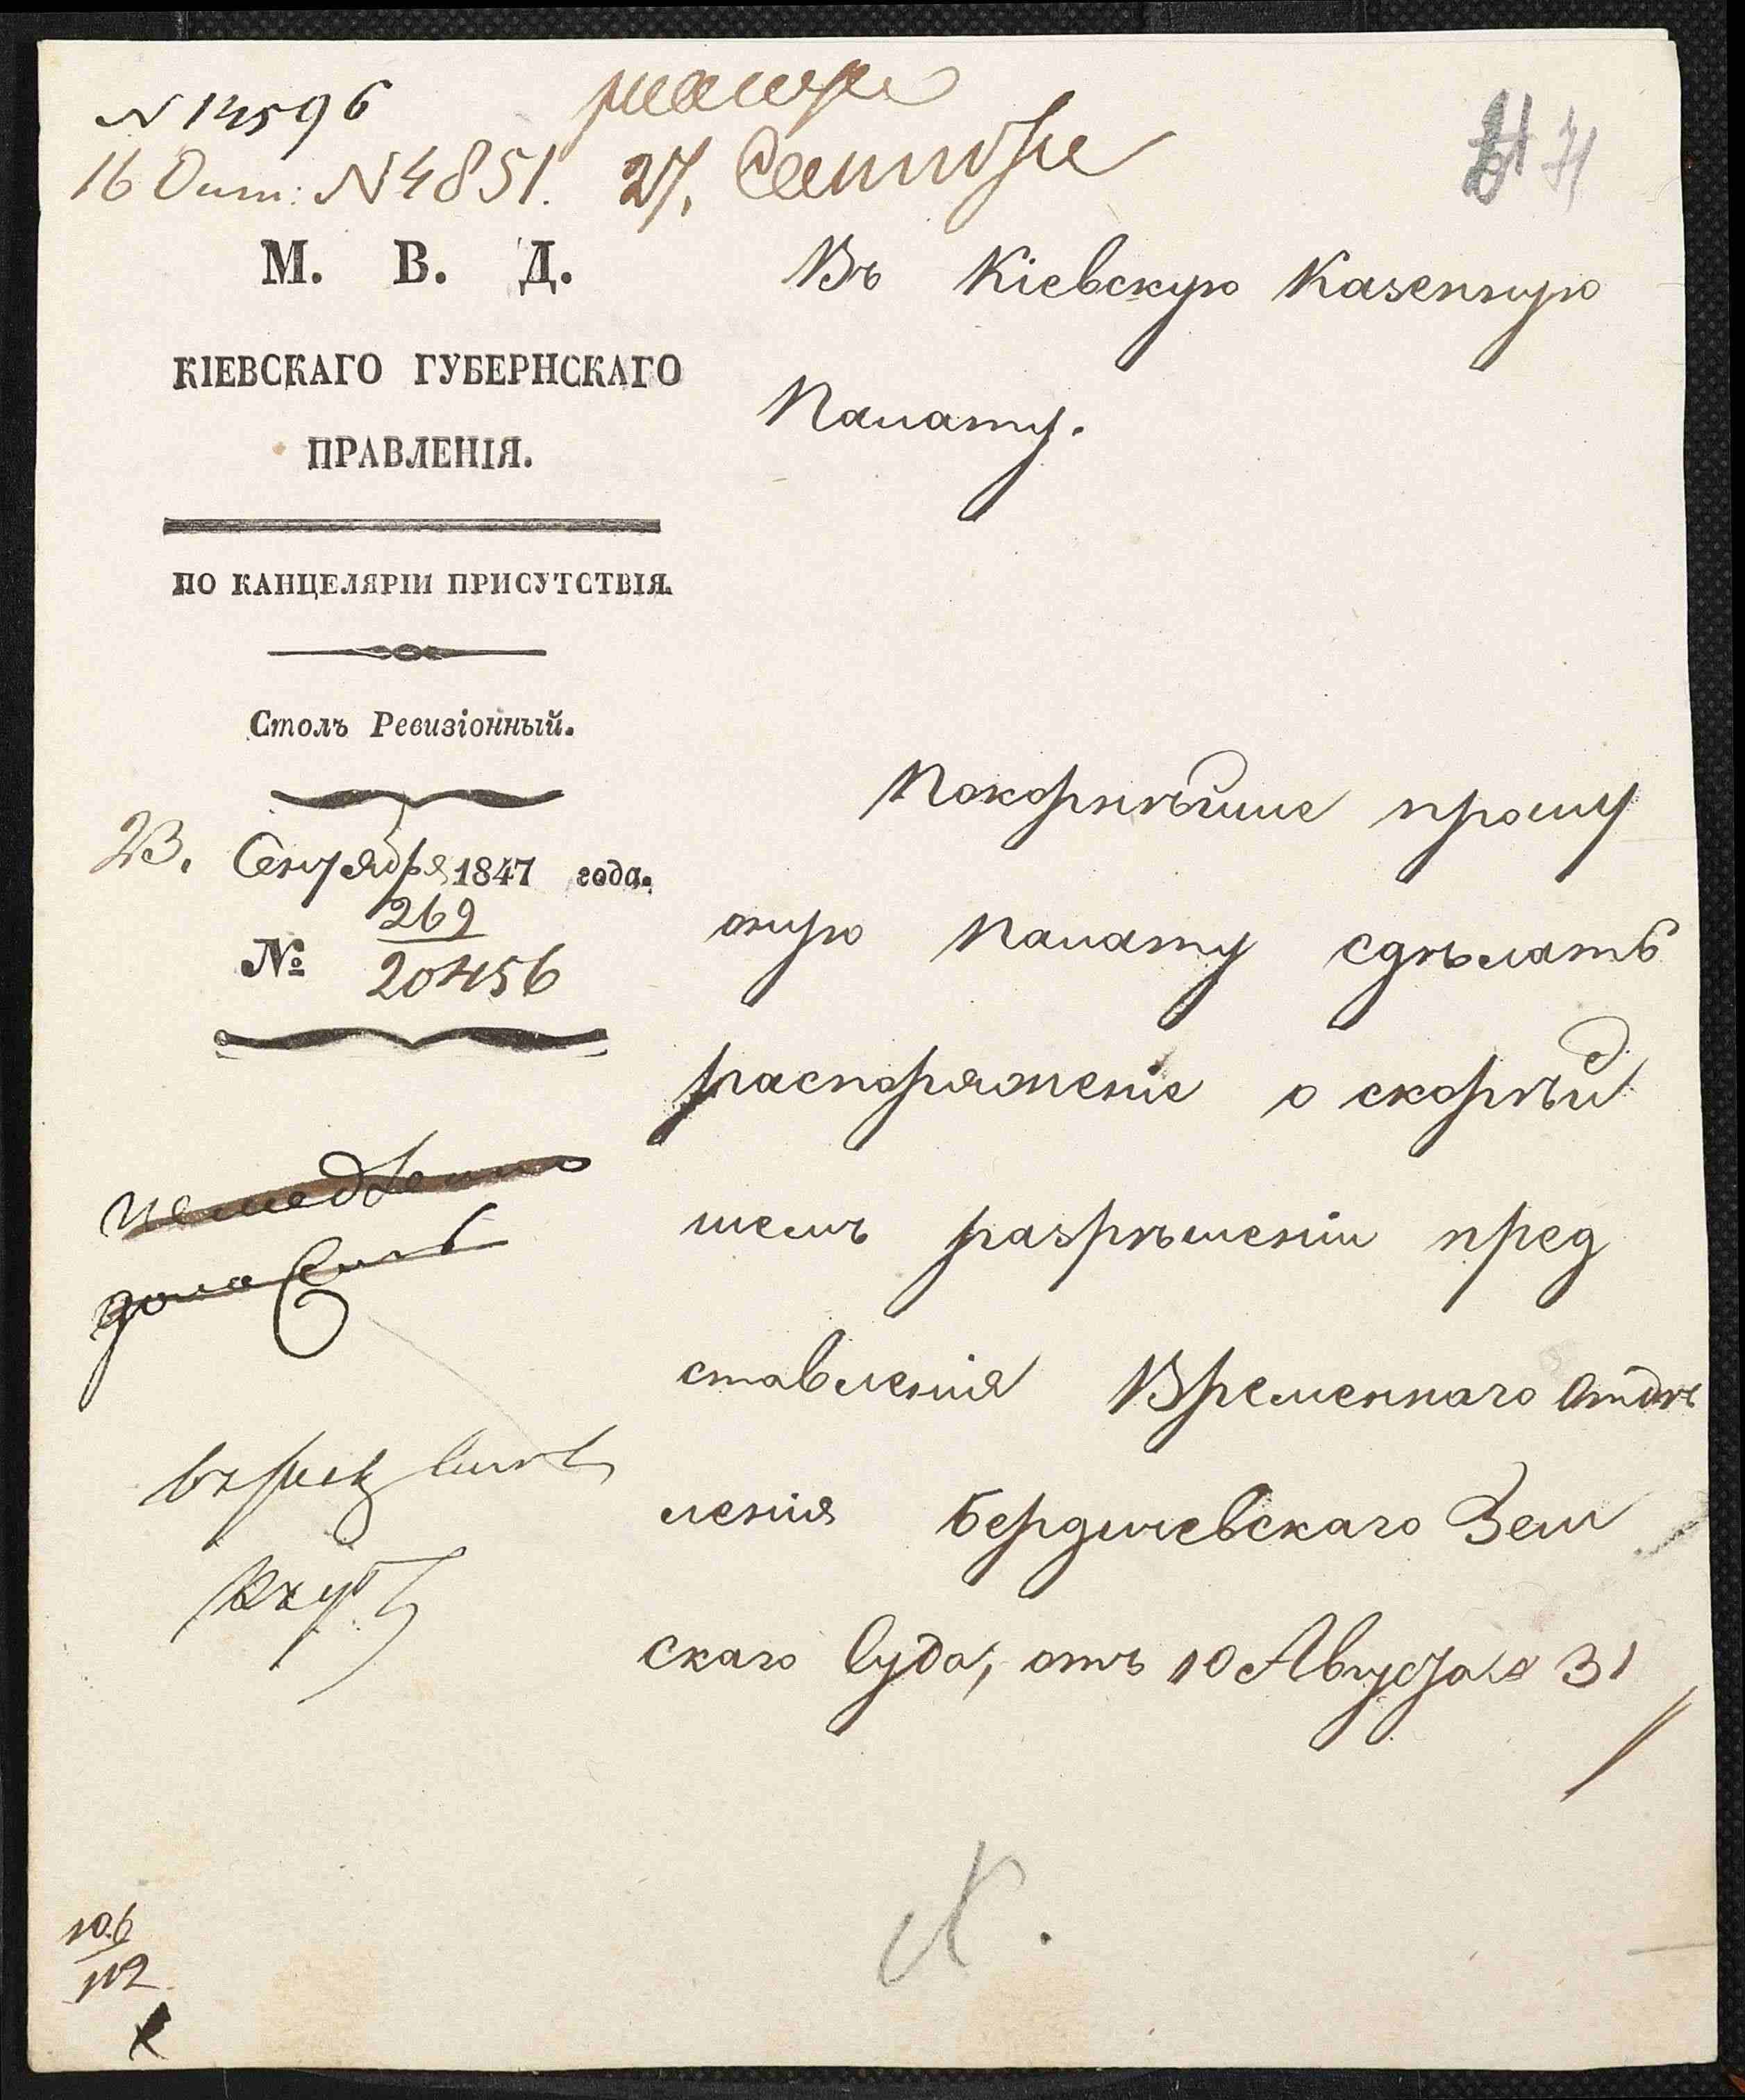 N 14596
16 Окт: N 4851. 27. Сентября
71
М. В. Д.
КІЕВСКАГО ГУБЕРНСКАГО
ПРАВЛЕНІЯ.
ПО КАНЦЕЛЯРІИ ПРИСУТСТВІЯ.
Столъ Ревизіонный.
23. Сентября 1847 года.
269
№ 20456
Въ Кіевскую Казенную
Палату.
Покорнѣйше прошу
оную Палату сдѣлать
распоряженіе о скорѣй
шемъ разрѣшеніи пред
ставленія Временнаго Отдѣ
ленія Бердичевскаго Зем
скаго Суда, отъ 10 Августа за 31
немедленно
106
112